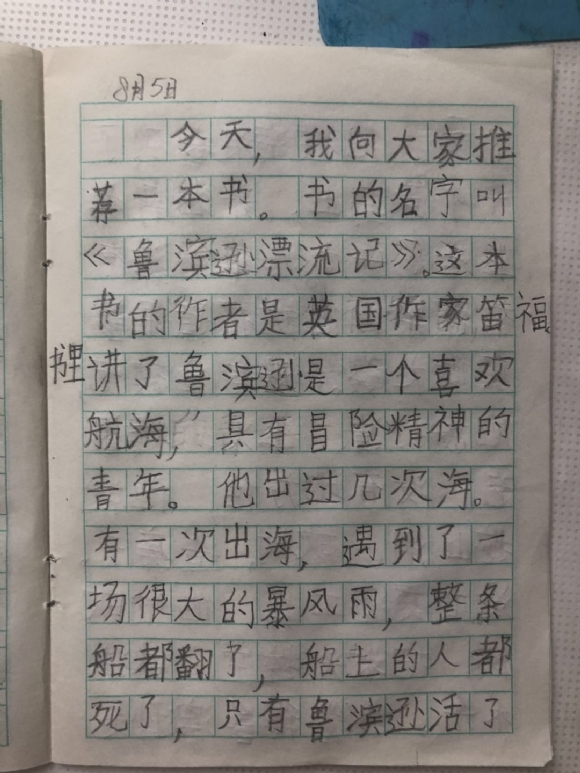 8月5日
今天，我向大家推
荐一本书。书的名字叫
《鲁滨逊漂流记》。这本
书的作者是英国作家笛福
书里讲了鲁滨逊是一个喜欢
航海，具有冒险精神的
青年。他出过几次海。
有一次出海，遇到了一
场很大的暴风雨，整条
船都翻了，船上的人都
死了，只有鲁滨逊活了